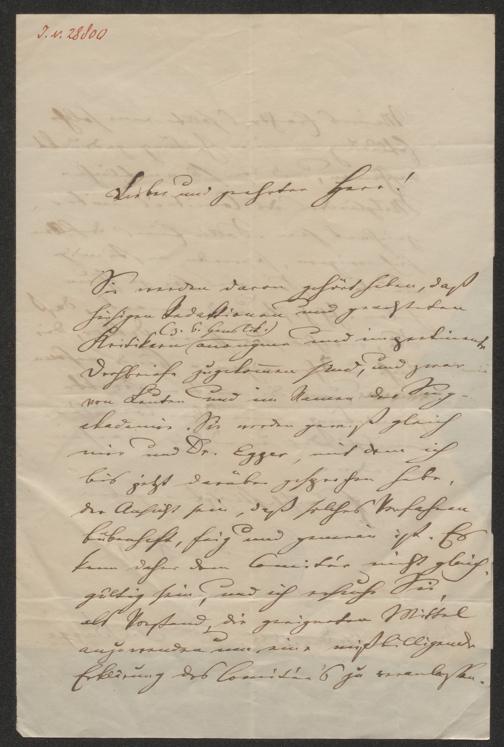 I. N. 28800
Lieber und geehrter Herr!
Sie werden davon gehört haben, daß
hiesigen Redaktionen und geachteten
(z. B. Hanslik)
Kritikern anonyme und impertinente
Drohbriefe zugekommen sind, und zwar
von Leuten und im Namen der Sing-
akademie. Sie werden gewiß gleich
mir und Dr. Egger, mit dem ich
bis jetzt darüber gesprochen habe,
der Ansicht sein, daß solches Verfahren
bübenhaft, feig und gemein ist. Es
kann daher dem Comitée nicht gleich-
gültig sein, und ich ersuche Sie
als Vorstand, die geeigneten Mittel
anzuwenden um eine mißbilligende
Erklärung des Comitée's zu veranlassen.